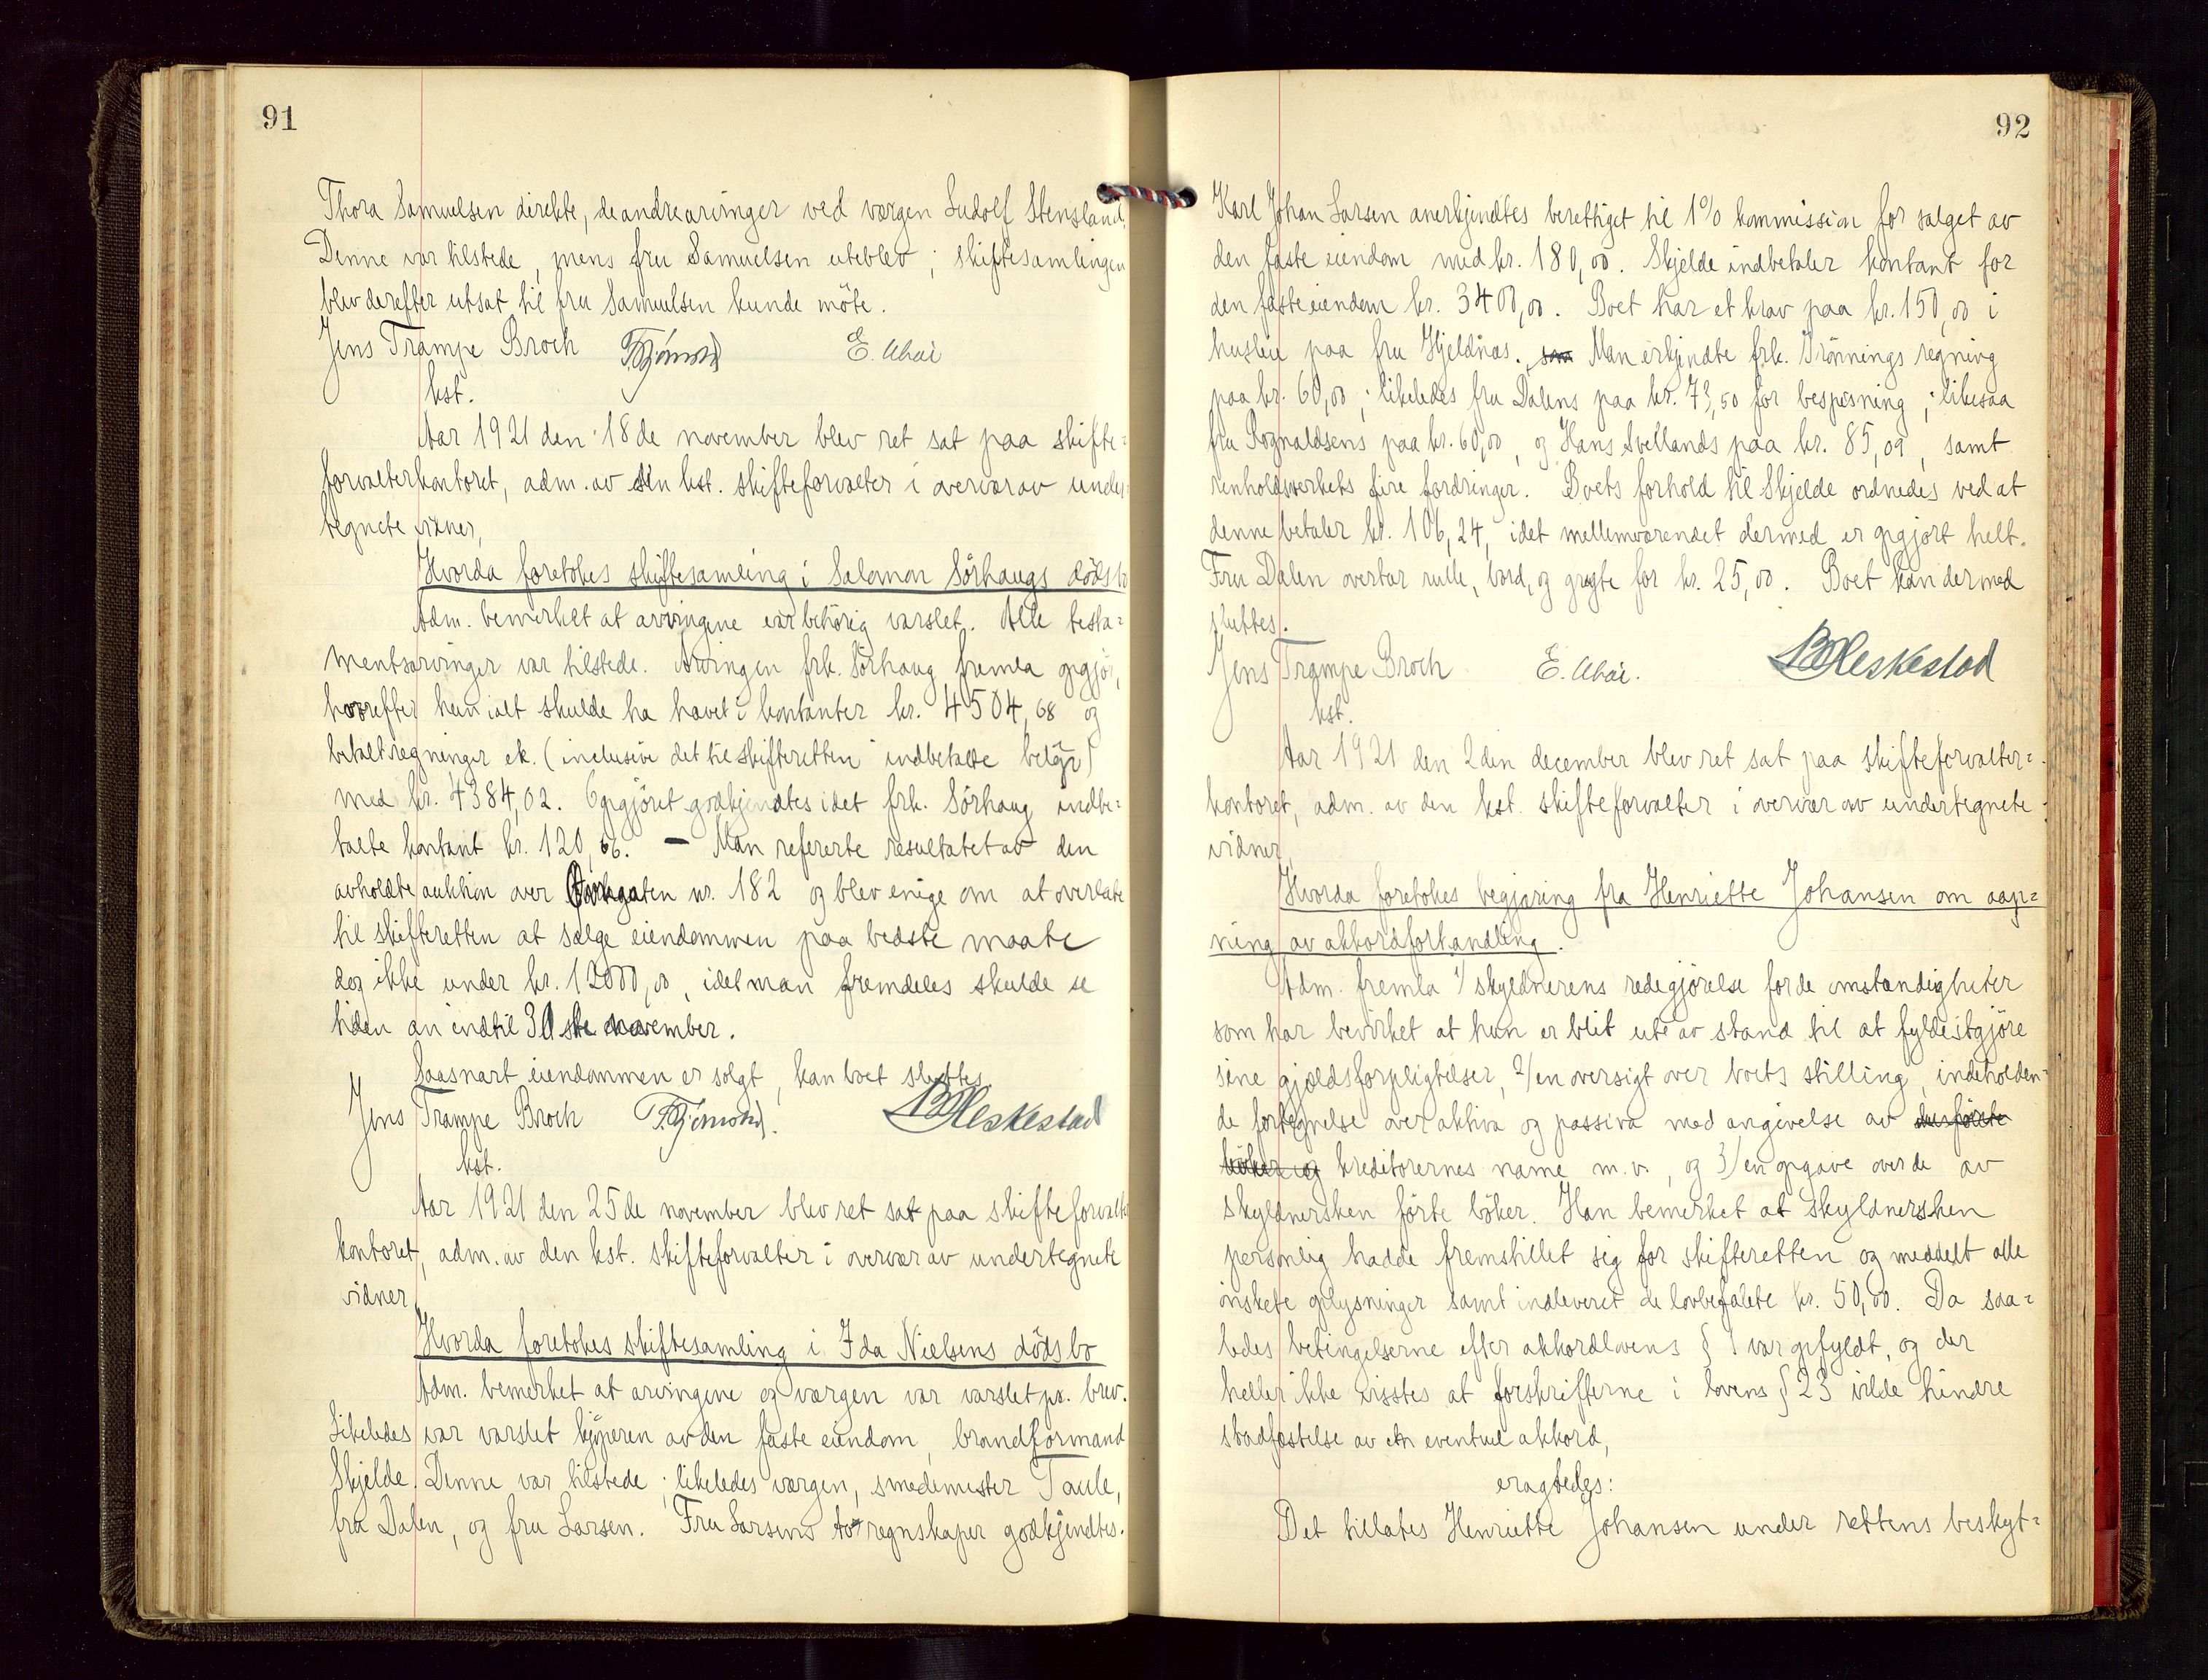 91
Thora Samuelsen direkte, de andre arvinger ved værgen Ludolf Stensland.
Denne var tilstede, mens fru Samuelsen uteblev; skiftesamlingen
blev derefter utsat til fru Samuelsen kunde möte.
Jens Trampe Broch
kst.
Aar 1921 den 18de november blev ret sat paa skifte=
forvalterkontoret, adm. av den kst. skifteforvalter i overvær av under=
tegnete vidner,
Hvorda foretokes skiftesamling i Salomon Sörhaugs dödsbo
Adm. bemerket at arvingene var behörig varslet. Alle testa=
mentsarvinger var tilstede. Arvingen frk. Sörhaug fremla opgjör,
hvorefter hun ialt skulde ha havet i kontanter kr. 4504,68 og
betalt regninger ek. (inclusive det til skifteretten indbetalte belöp)
med kr. 4384,02. Opgjöret godkjendtes idet frk. Sörhaug indbe=
talte kontant kr. 120,66. — Man refererte resultatet av den
avholdte auktion over nr. 182 og blev enige om at overlate
til skifteretten at sælge eiendommen paa bedste maate
dog ikke under kr. 12000,00, idet man fremdeles skulde se
tiden an indtil 30 ste november.
Saasnart eiendommen er solgt, kan boet sluttes.
Jens Trampe Broch B Heskestad
kst.
Aar 1921 den 25de november blev ret sat paa skifteforvalter
kontoret, adm. av den kst. skifteforvalter i overvær av undertegnete
vidner
Hvorda foretokes skiftesamling i Ida Nielsens dödsbo
Adm. bemerket at arvingene og værgen var varslet pr. brev.
Likeledes var varslet kjöperen av den faste eiendom, brandformand
Skjelde. Denne var tilstede; likeledes værgen, smedemester Taule,
fru Dalen, og fru Larsen. Fru Larsens to regnskaper godkjendtes.
92
Karl Johan Larsen anerkjendtes berettiget til 1% kommission for salget av
den faste eiendom med kr. 180,00. Skjelde indbetaler kontant for
den faste eiendom kr. 3400,00. Boet har et krav paa kr. 150,00 i
husleie paa fru Hjeldnæs. som Man erkjendte frk. Brönnings regning
paa kr. 60,00; likeledes fru Dalens paa kr. 73,50 for bespisning; likesaa
fru Rognaldsens paa kr. 60,00, og Hans Svellands paa kr. 85,09, samt
renholdsverkets fire fordringer. Boets forhold til Skjelde ordnedes ved at
denne betaler kr. 106,24, idet mellemværendet dermed er opgjort helt.
Fru Dalen overtar rulle, bord, og gryte for kr. 25,00. Boet kan dermed
sluttes.
Jens Trampe Broch B Heskestad
kst.
Aar 1921 den 2den december blev ret sat paa skifteforvalter=
kontoret, adm. av den kst. skifteforvalter i overvær av undertegnete
vidner,
Hvorda foretokes begjæring fra Henriette Johansen om aap=
ning av akkordforhandling.
Adm. fremla 1/ skyldnerens redegjörelse for de omstændigheter
som har bevirket at hun er blit ute av stand til at fyldestgjöre
sine gjældsforpligtelser, 2/ en oversigt over boets stilling, indeholden=
de fortegnelse over aktiva og passiva med angivelse av de förte
böker og kreditorernes navne m.v., og 3/ en opgave over de av
skyldnersken förte böker. Han bemerket at skyldnersken
personlig hadde fremstillet sig for skifteretten og meddelt alle
önskete oplysninger samt indleveret de lovbefalete kr. 50,00. Da saa=
ledes betingelserne efter akkordlovens § 1 var opfyldt, og der
heller ikke vistes at forskrifterne i lovens § 23 vilde hindre
stadfæstelse av en eventuel akkord,
eragtedes:
Det tillates Henriette Johansen under rettens beskyt=